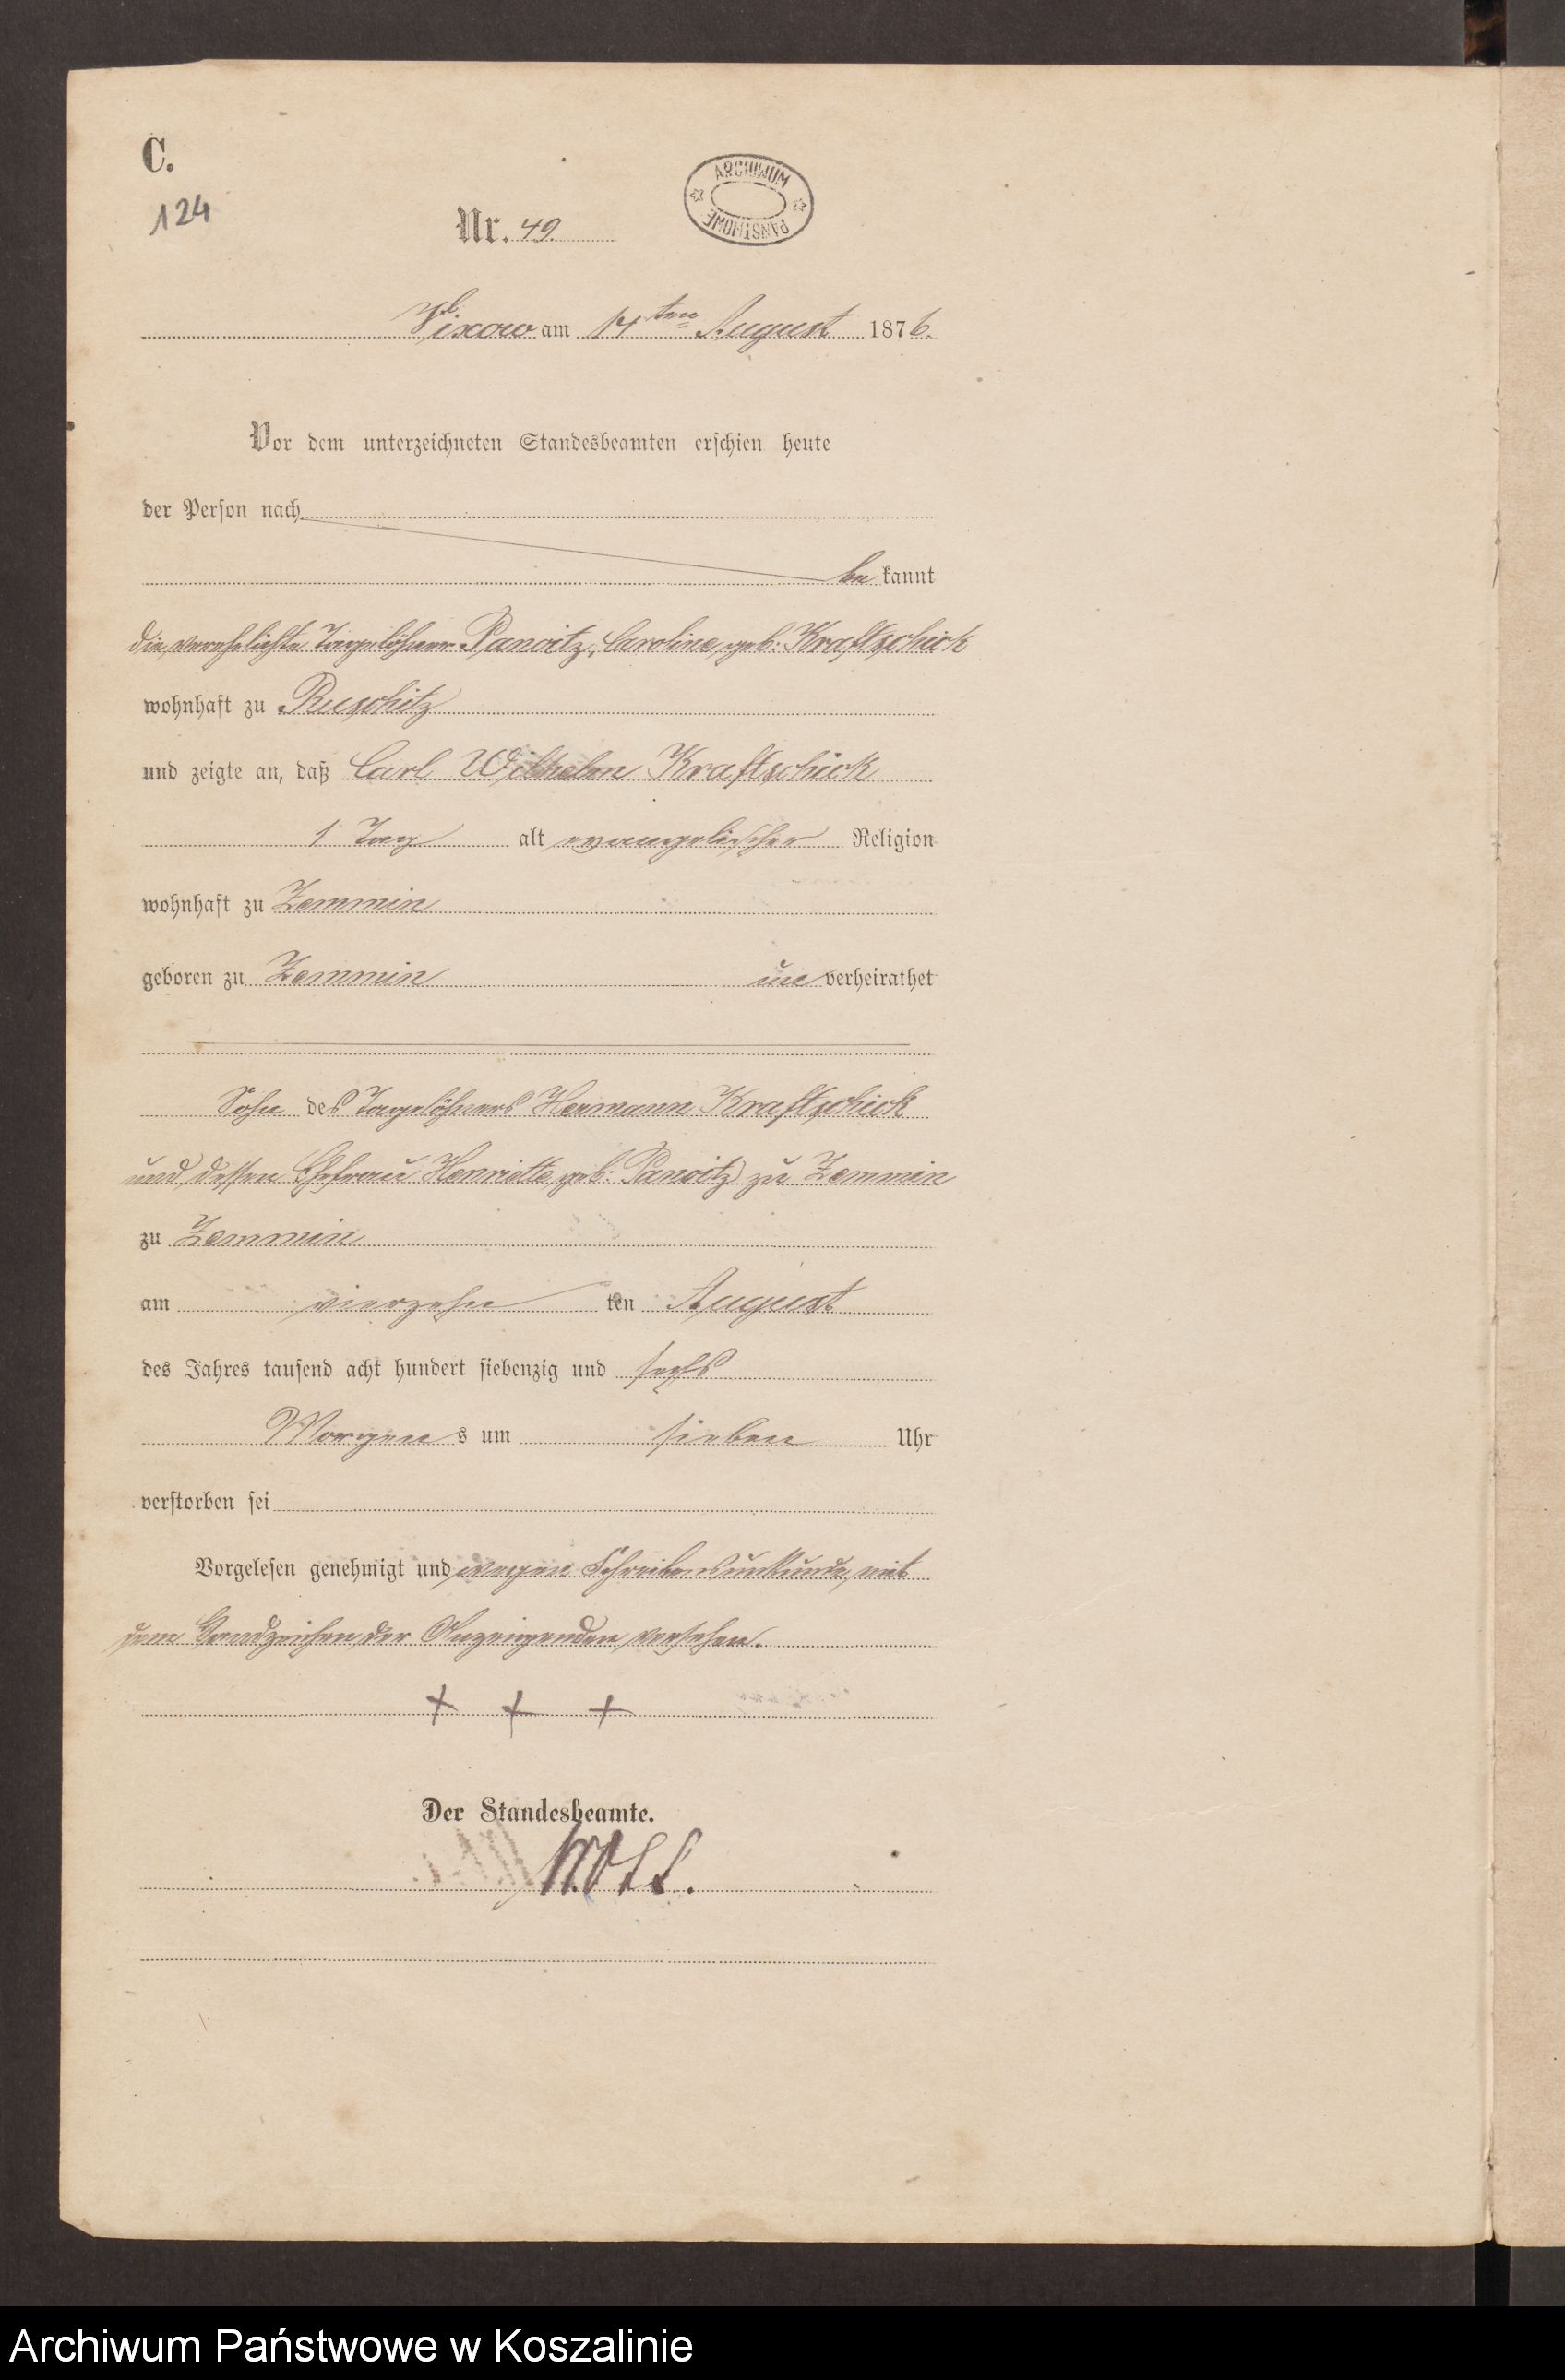 C.
124
Nr. 49.
ARCHIWUM PAŃSTWOWE
Vixow am 14ten August 1876.
Vor dem unterzeichneten Standesbeamten erschien heute
der Person nach
be kannt
die verehelichte Tagelöhner Panwitz, Caroline, geb: Kraftschick
wohnhaft zu Ruschitz
und zeigte an, daß Carl Wilhelm Kraftschick
1 Tag alt evangelischer Religion
wohnhaft zu Zemmin
geboren zu Zemmin un verheirathet
Sohn des Tagelöhners Hermann Kraftschick
und dessen Ehefrau Henriette, geb: Panwitz zu Zemmin
zu Zemmin
am vierzehn ten August
des Jahres tausend acht hundert siebenzig und sechs
Morgen s um sieben Uhr
verstorben sei
Vorgelesen genehmigt und wegen Schreibensunkunde, mit
dem Handzeichen der Anzeigenden versehen.
+ + +
Der Standesbeamte.
Archiwum Państwowe w Koszalinie